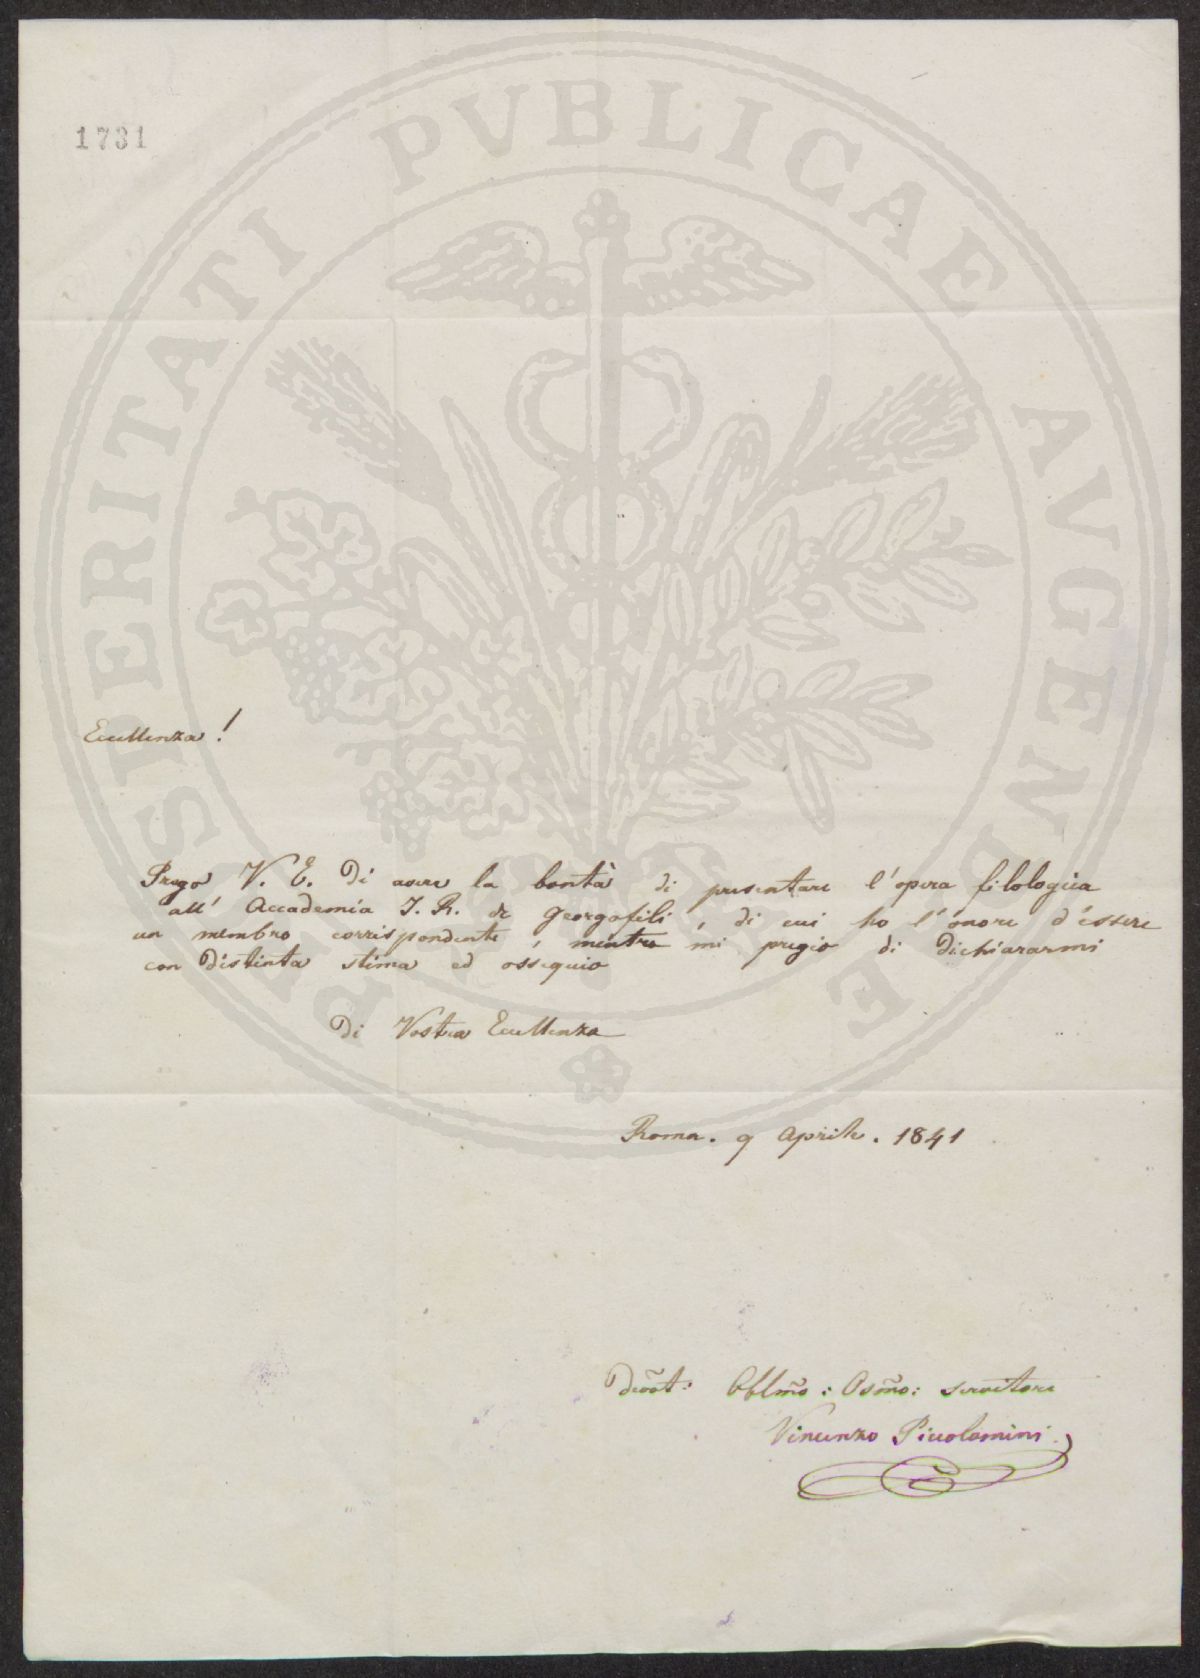 1731
PROSPERITATI PVBLICAE AVGENDAE
Eccellenza!
Prego V. E. Di avere la bontà di presentare l'opera filologica
all' Accademia I. R. de Georgofili, di cui ho l'onore d'essere
un membro corrispondente, mentre mi pregio di Dichiararmi
con Distinta stima ed ossequio
Di Vostra Eccellenza
Roma. 9 Aprile. 1841
Devõt: Obblmõ: Osmõ: servitore
Vincenzo Piccolomini